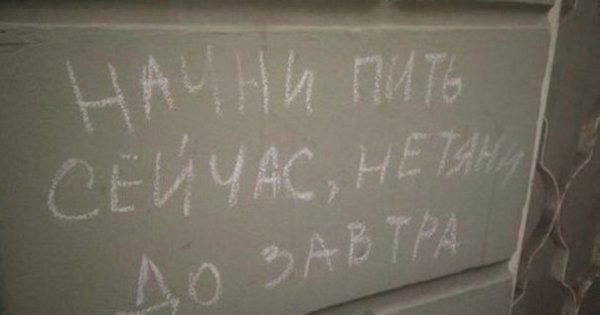 НАЧНИ ПИТЬ
СЕЙЧАС, НЕ ТЯНИ
ДО ЗАВТРА